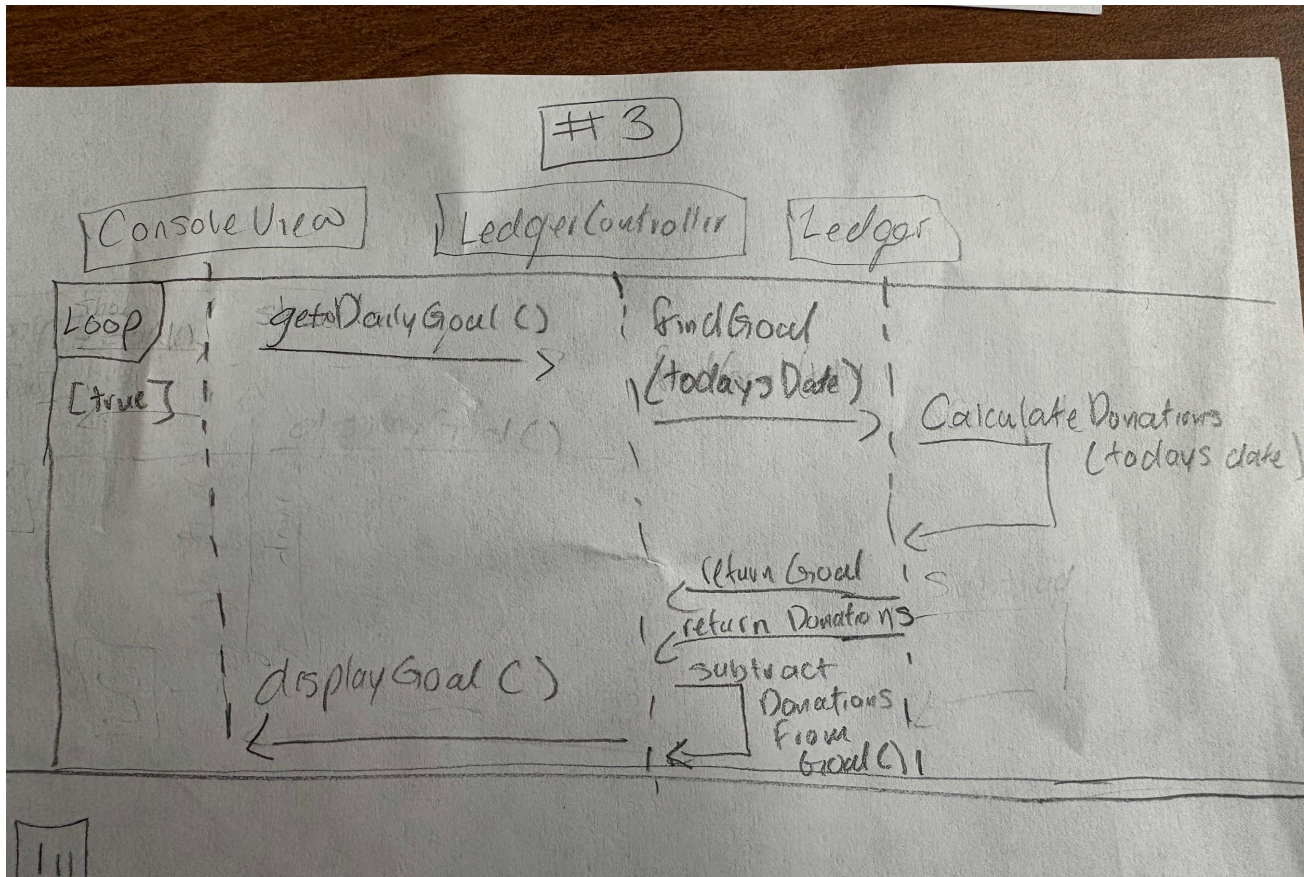 #3
ConsoleView
LedgerController
Ledger
Loop
[true]
getDailyGoal()
findGoal
(todaysDate)
CalculateDonations
(todays date)
return Goal
return Donations
subtract
Donations
From
Goal()
displayGoal()